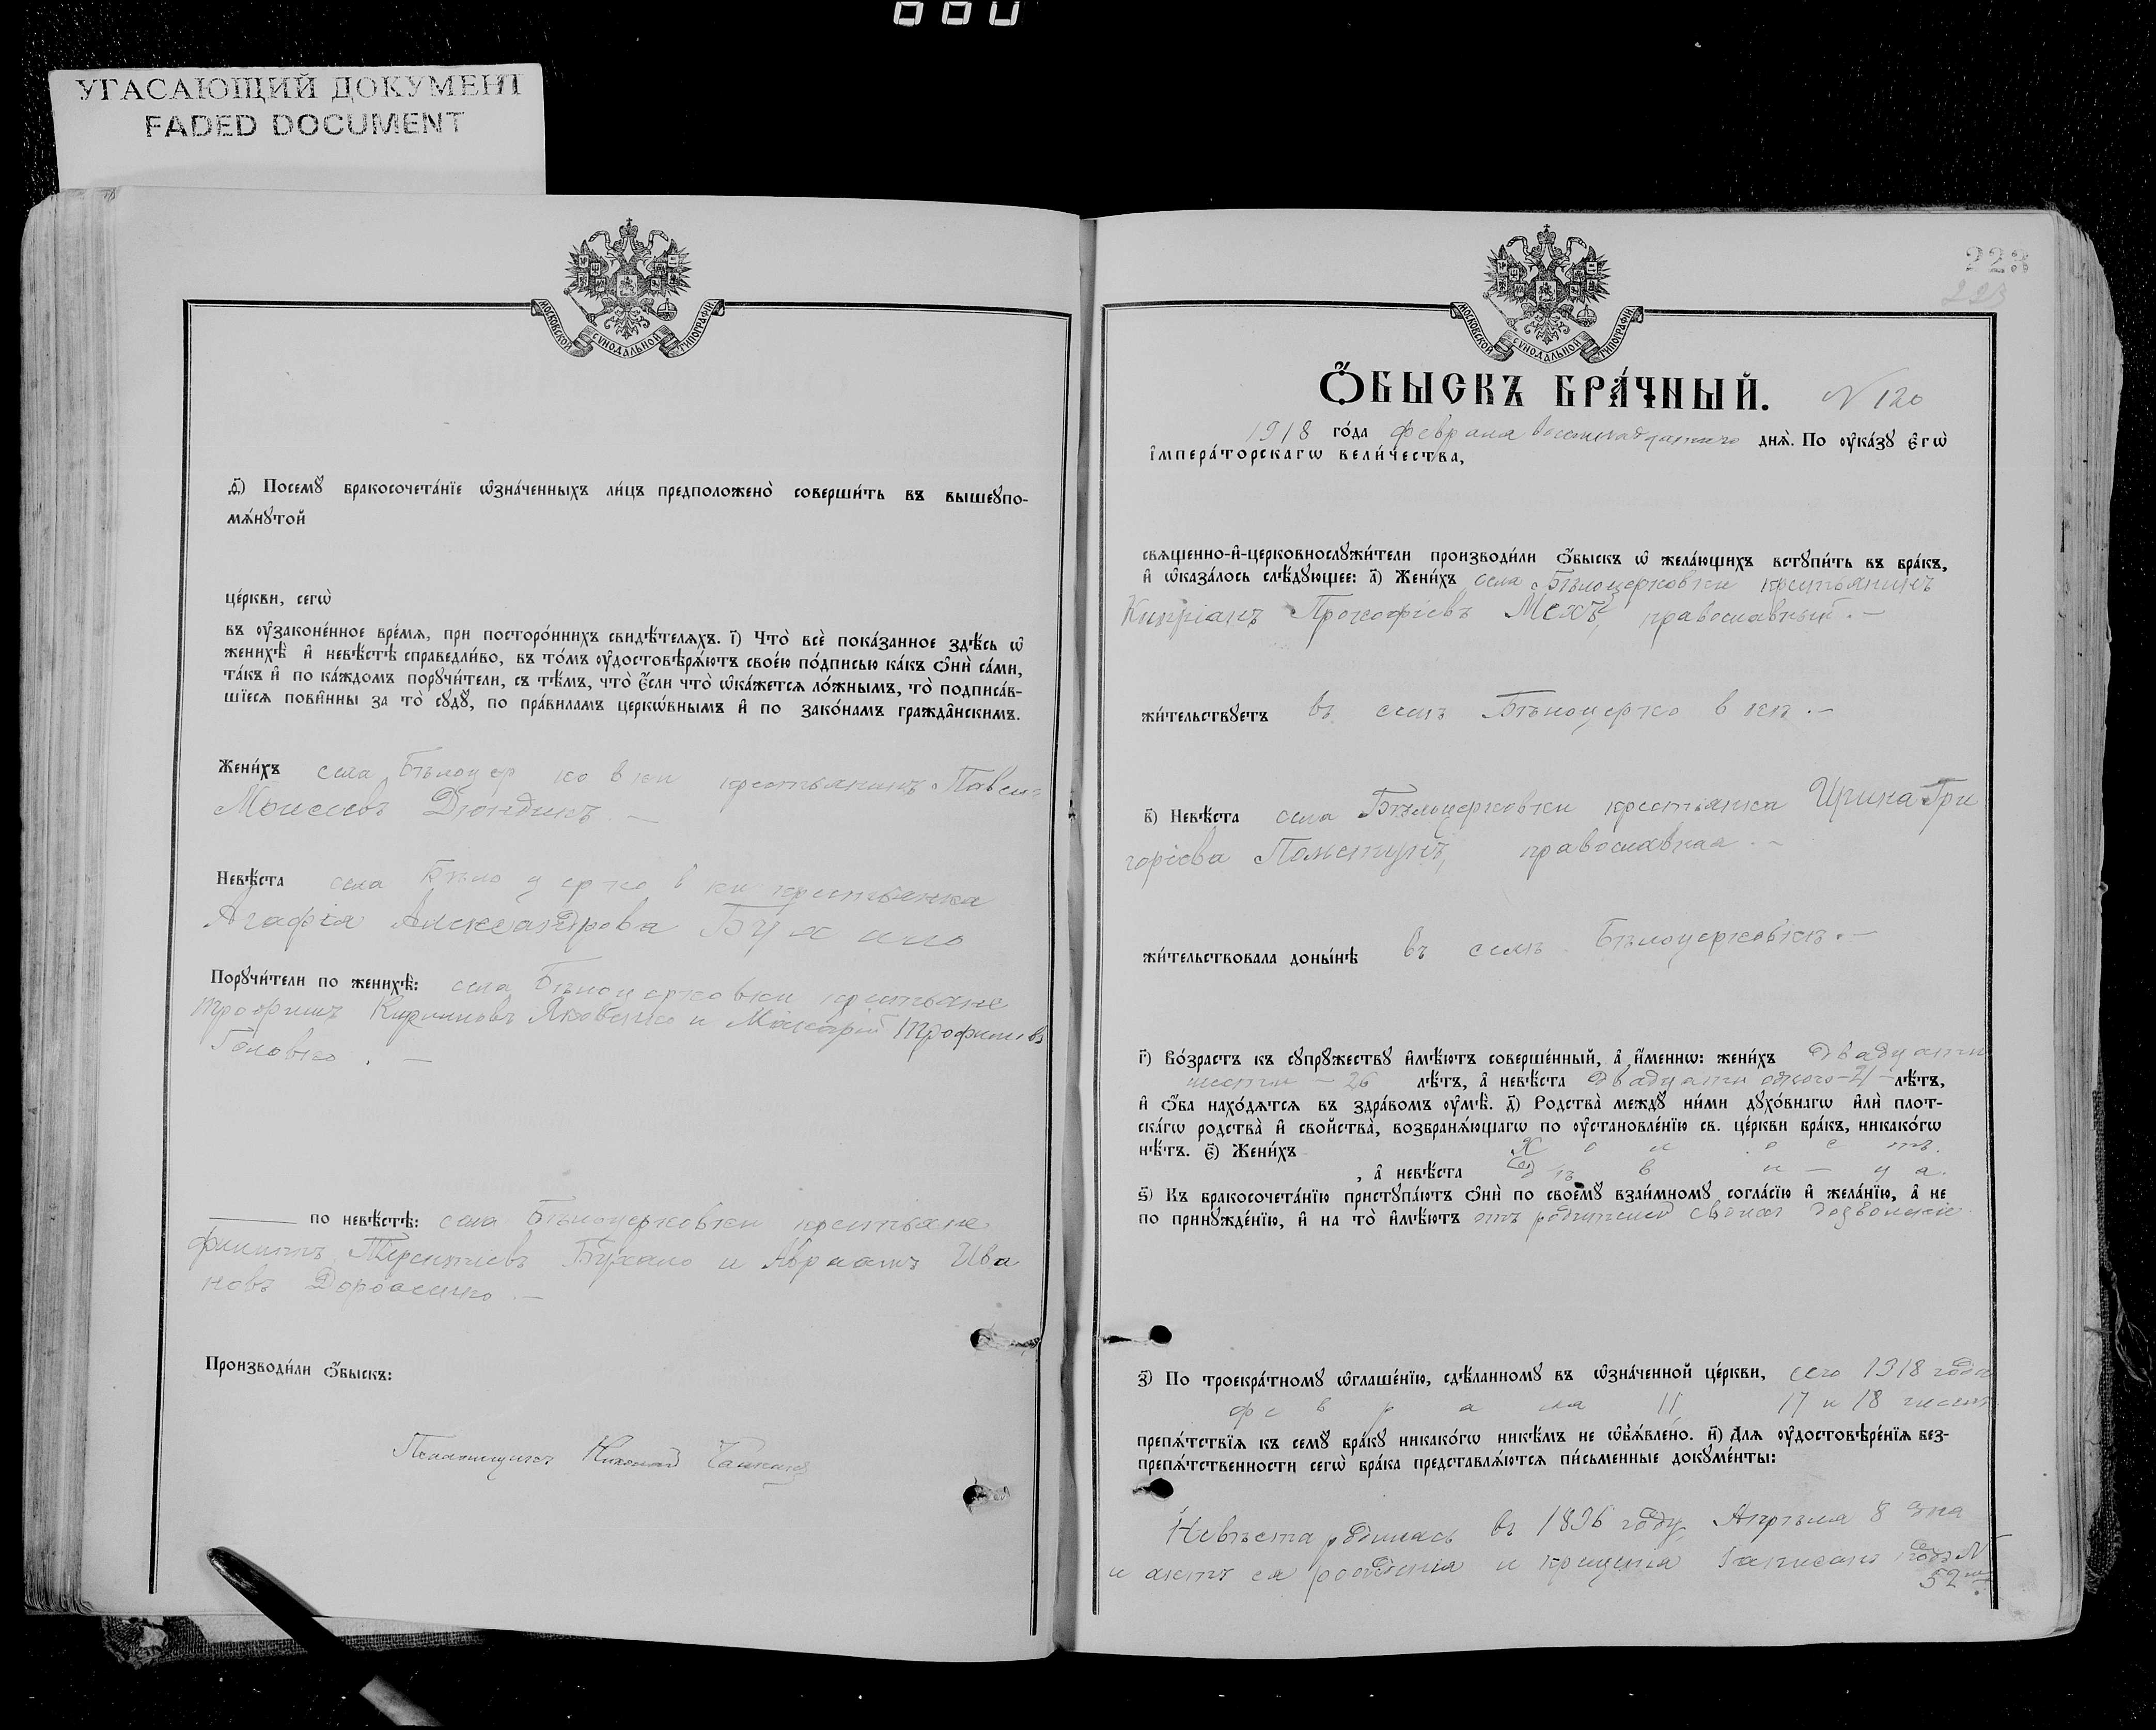 УГАСАЮЩИЙ ДОКУМЕНТ
FADED DOCUMENT
МОСКОВСКОЙ СѴНОДАЛЬНОЙ ТИПОГРАФІИ
ѳ҃) Посемꙋ бракосочета́нїе ѡ҆зна́ченныхъ ли́цъ предположено̀ соверши́ть въ вышеꙋпо-
мѧ́нꙋтой
це́ркви, сегѡ̀
въ ᲂу҆законе́нное вре́мѧ, при посторо́ннихъ свидѣ́телѧхъ. і҃) Что̀ всѐ пока́занное здѣ́сь ѡ҆
женихѣ̀ и҆ невѣ́стѣ справедли́во, въ то́мъ ᲂу҆достовѣрѧ́ютъ свое́ю по́дписью ка́къ ѻ҆нѝ са́ми,
та́къ и҆ по ка́ждомъ порꙋчи́тели, съ тѣ́мъ, что̀ є҆́сли что̀ ѡ҆ка́жетсѧ ло́жнымъ, то̀ подписа́в-
шїесѧ пови́нны за то̀ сꙋдꙋ̀, по пра́виламъ церкѡ́внымъ и҆ по зако́намъ гражда́нскимъ.
Жени́хъ села Бѣлоцерковки крестьянинъ Павелъ
Моисеевъ Дюндикъ. —
Невѣ́ста села Бѣлоцерковки крестьянка
Агафія Александрова Бухало
Порꙋчи́тели по женихѣ̀: села Бѣлоцерковки крестьяне
Трофимъ Кирилловъ Яковенко и Макарій Трофимовъ
Головко. —
по невѣ́стѣ: села Бѣлоцерковки крестьяне
Филиппъ Терентіевъ Бухало и Авраамъ Ива
новъ
Производи́ли ѻ҆́быскъ:
Псаломщикъ Николай
223
223
МОСКОВСКОЙ СѴНОДАЛЬНОЙ ТИПОГРАФІИ
Ѻ҆́БЫСКЪ БРА́ЧНЫЙ. N 120
1918 го́да февраля восемнадцатаго днѧ̀. По ᲂу҆ка́зꙋ є҆гѡ̀
і҆мпера́торскагѡ вели́чества,
свѧще́нно-и҆-церковнослꙋжи́тели производи́ли ѻ҆́быскъ ѡ҆ жела́ющихъ встꙋпи́ть въ бра́къ,
и҆ ѡ҆каза́лось слѣ́дꙋющее: а҃) Жени́хъ села Бѣлоцерковки крестьянинъ
Кипріанъ Прокофіевъ Мехъ, православный. —
жи́тельствꙋетъ въ селѣ Бѣлоцерковкѣ. —
в҃) Невѣ́ста села Бѣлоцерковки крестьянка Ирина Гри
горіева православная. —
жи́тельствовала доны́нѣ въ селѣ Бѣлоцерковкѣ. —
г҃) Во́зрастъ къ сꙋпрꙋ́жествꙋ и҆мѣ́ютъ соверше́нный, а҆ и҆́меннѡ: жени́хъ двадцати
шести — 26 лѣ́тъ, а҆ невѣ́ста двадцати одного — 21 — лѣ́тъ,
и҆ ѻ҆́ба нахо́дѧтсѧ въ здра́вомъ ᲂу҆мѣ̀. д҃) Родства̀ междꙋ̀ ни́ми дꙋхо́внагѡ и҆лѝ плот-
ска́гѡ родства̀ и҆ свойства̀, возбранѧ́ющагѡ по ᲂу҆становле́нїю св. це́ркви бра́къ, никако́гѡ
нѣ́тъ. є҃) Жени́хъ холостъ.
, а҆ невѣ́ста дѣвица.
ѕ҃) Къ бракосочета́нїю пристꙋпа́ютъ ѻ҆нѝ по своемꙋ̀ взаи́мномꙋ согла́сїю и҆ жела́нїю, а҆ не
по принꙋжде́нїю, и҆ на то̀ и҆мѣ́ютъ отъ родителей своихъ дозволеніе.
з҃) По троекра́тномꙋ ѡ҆глаше́нїю, сдѣ́ланномꙋ въ ѡ҆зна́ченной це́ркви, сего 1918 года
февраля 11, 17 и 18 чиселъ
препѧ́тствїѧ къ семꙋ̀ бра́кꙋ никако́гѡ никѣ́мъ не ѡ҆б̾ѧ́влено. и҃) Длѧ̀ ᲂу҆достовѣре́нїѧ без-
препѧ́тственности сегѡ̀ бра́ка представлѧ́ютсѧ пи́сьменные докꙋме́нты:
Невѣста родилась въ 1896 году, Апрѣля 8 дня
и актъ ея рожденія и крещенія записанъ подъ N
52